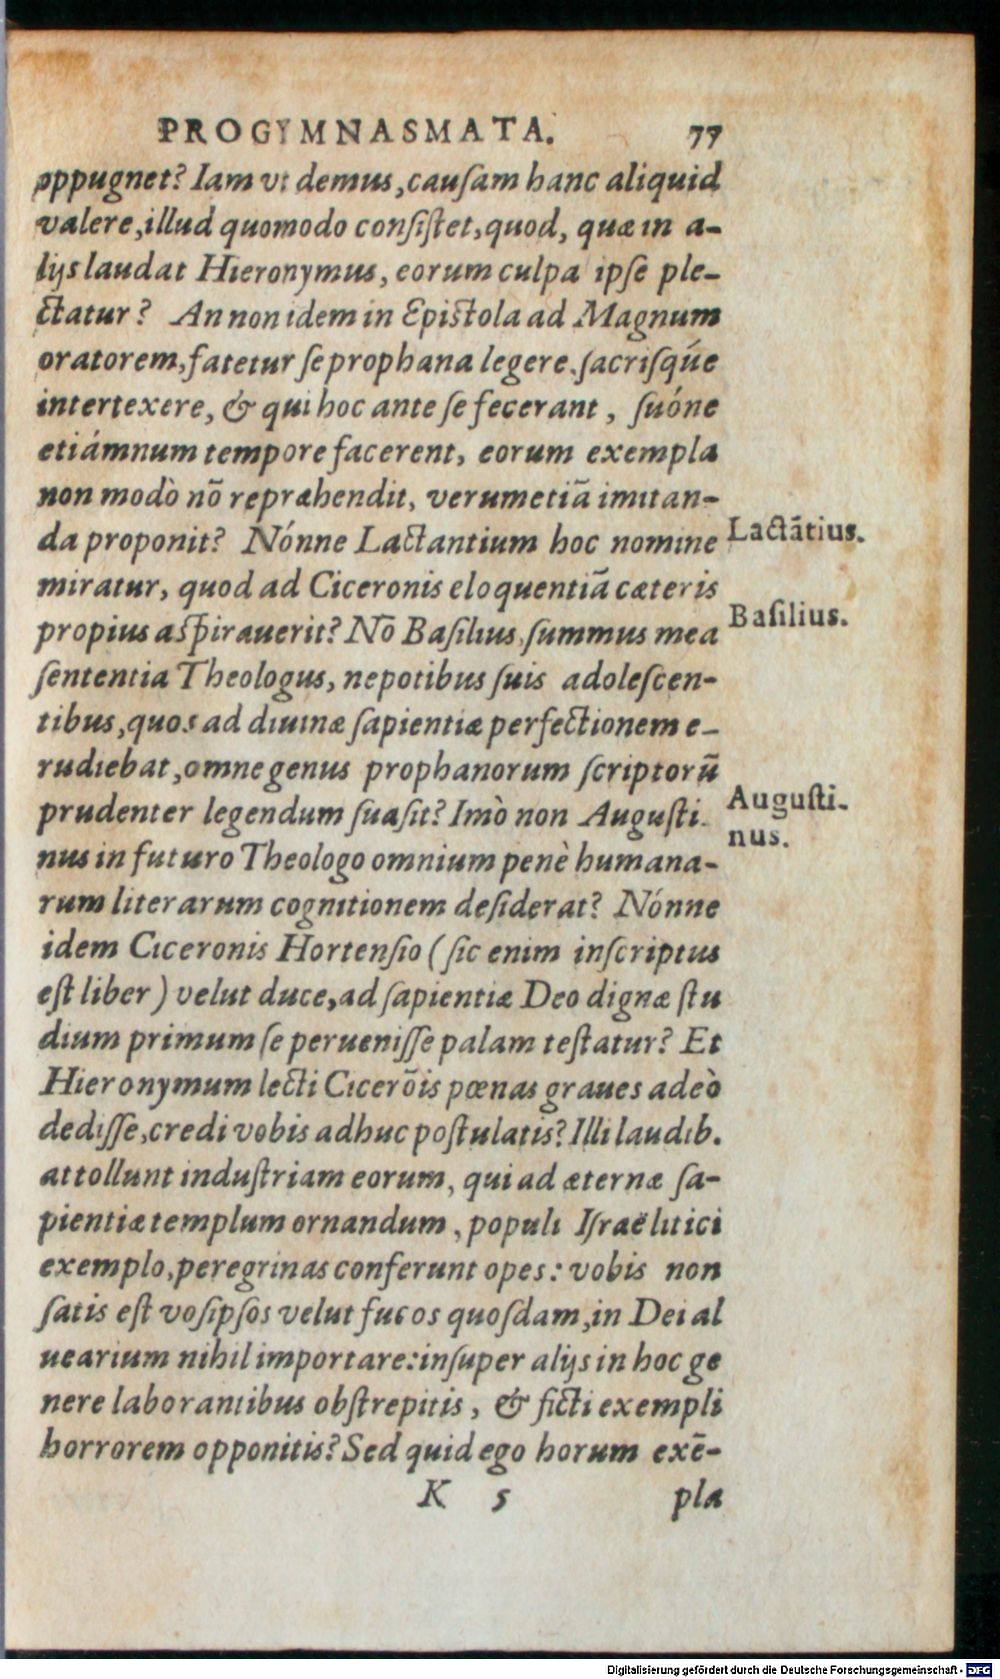 PROGYMNASMATA. 77
oppugnet? Iam vt demus, cauſam hanc aliquid
valere, illud quomodo conſiſtet, quod, quæ in a-
lijs laudat Hieronymus, eorum culpa ipſe ple-
ctatur? An non idem in Epiſtola ad Magnum
oratorem, fatetur ſe prophana legere, ſacriſq́ue
intertexere, & qui hoc ante ſe fecerant, ſuóne
etiámnum tempore facerent, eorum exempla
non modò nõ repræhendit, verumetiã imitan-
da proponit? Nónne Lactantium hoc nomine
Lactãtius.
miratur, quod ad Ciceronis eloquentiã cæteris
propius aſpirauerit? Nõ Baſilius, ſummus mea
Baſilius.
ſententia Theologus, nepotibus ſuis adoleſcen-
tibus, quos ad diuinæ ſapientiæ perfectionem e-
rudiebat, omne genus prophanorum ſcriptorũ
prudenter legendum ſuaſit? Imò non Auguſti-
Auguſti-
nus.
nus in futuro Theologo omnium penè humana-
rum literarum cognitionem deſiderat? Nónne
idem Ciceronis Hortenſio (ſic enim inſcriptus
eſt liber) velut duce, ad ſapientiæ Deo dignæ ſtu
dium primum ſe perueniſſe palam teſtatur? Et
Hieronymum lecti Cicerõis pœnas graues adeò
dediſſe, credi vobis adhuc poſtulatis? Illi laudib.
attollunt induſtriam eorum, qui ad æternæ ſa-
pientiæ templum ornandum, populi Iſraëlitici
exemplo, peregrinas conferunt opes: vobis non
ſatis eſt voſipſos velut fucos quoſdam, in Dei al
uearium nihil importare: inſuper alijs in hoc ge
nere laborantibus obſtrepitis, & ficti exempli
horrorem opponitis? Sed quid ego horum exẽ-
K 5 pla
Digitalisierung gefördert durch die Deutsche Forschungsgemeinschaft - DFG